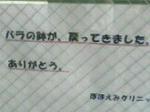 バラの鉢が、戻ってきました。
ありがとう。
ほほえみクリニッ